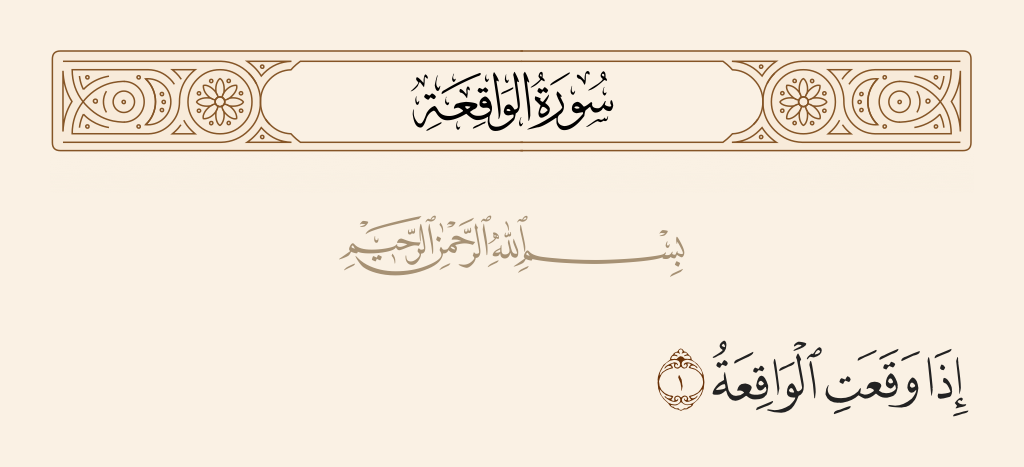 سُورَةُ الوَاقِعَةِ
بِسْمِ ٱللَّهِ ٱلرَّحْمَٰنِ ٱلرَّحِيمِ
إِذَا وَقَعَتِ ٱلْوَاقِعَةُ ١